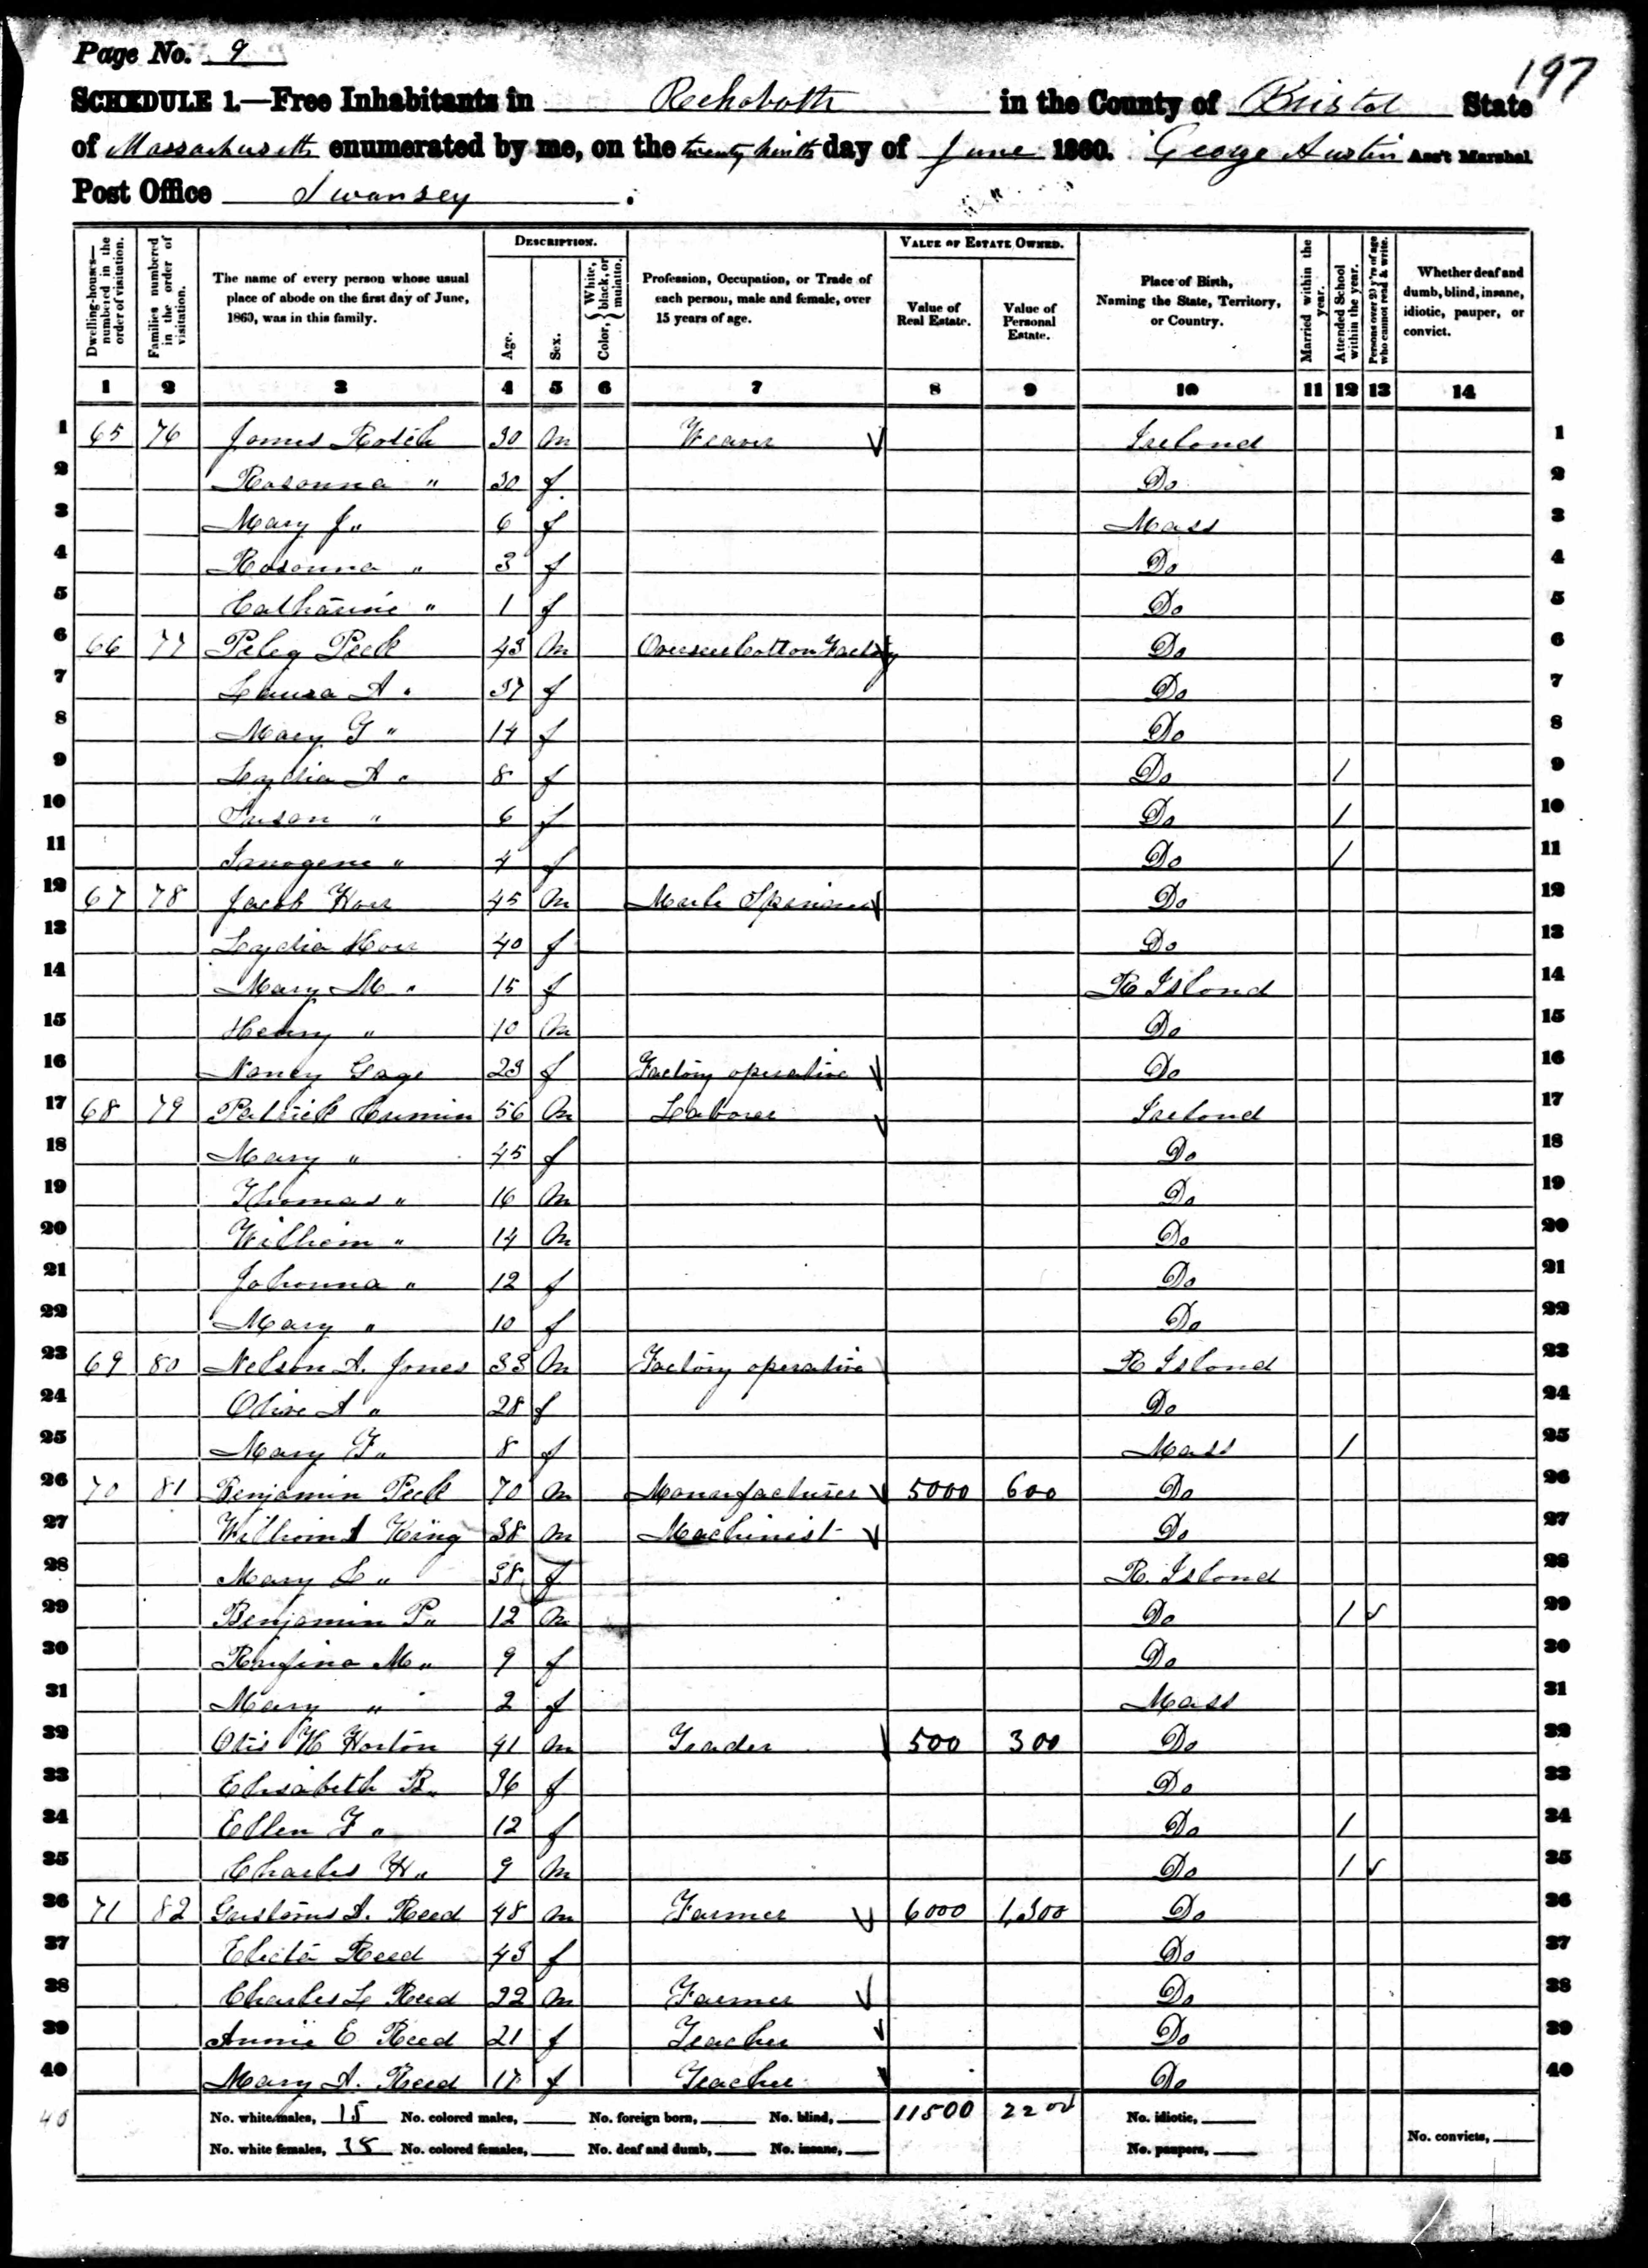 Page No. 9
197
SCHEDULE 1.—Free Inhabitants in Rehoboth in the County of Bristol State
of Massachusetts enumerated by me, on the twenty ninth day of June 1860. George Austin Ass't Marshal
Post Office Swansey.
DESCRIPTION. VALUE OF ESTATE OWNED.
Dwelling-houses—numbered in the order of visitation. Families numbered in the order of visitation. The name of every person whose usual place of abode on the first day of June, 1860, was in this family. Age. Sex. Color, {White, black, or mulatto. Profession, Occupation, or Trade of each person, male and female, over 15 years of age. Value of Real Estate. Value of Personal Estate. Place of Birth, Naming the State, Territory, or Country. Married within the year. Attended School within the year. Persons over 20 y'rs of age who cannot read & write. Whether deaf and dumb, blind, insane, idiotic, pauper, or convict.
1 2 3 4 5 6 7 8 9 10 11 12 13 14
1 65 76 James 30 m Weaver Ireland 1
2 Rosanna " 30 f Do 2
3 Mary J " 6 f Mass 3
4 Rosanna " 3 f Do 4
5 Catharine " 1 f Do 5
6 66 77 Peleg Peck 43 m Overseer Cotton Factory Do 6
7 Laura A " 37 f Do 7
8 Mary G " 14 f Do 8
9 Lydia A " 8 f Do / 9
10 Susan " 6 f Do / 10
11 Imogene " 4 f Do / 11
12 67 78 Jacob Horr 45 m Mule Spinner Do 12
13 Lydia Horr 40 f Do 13
14 Mary M " 15 f R Island 14
15 Henry " 10 m Do 15
16 Nancy Gage 23 f Factory operative Do 16
17 68 79 Patrick 56 m Laborer Ireland 17
18 Mary " 45 f Do 18
19 Thomas " 16 m Do 19
20 William " 14 m Do 20
21 Johanna " 12 f Do 21
22 Mary " 10 f Do 22
23 69 80 Nelson A. Jones 33 m Factory operative R Island 23
24 Olive A " 28 f Do 24
25 Mary F " 8 f Mass / 25
26 70 81 Benjamin Peck 70 m Manufacturer 5000 600 Do 26
27 William A King 38 m Machinist Do 27
28 Mary L " 38 f R. Island 28
29 Benjamin P " 12 m Do / 29
30 Rufina M " 9 f Do 30
31 Mary " 2 f Mass 31
32 Otis H Horton 41 m Trader 500 300 Do 32
33 Elisabeth B " 36 f Do 33
34 Ellen F " 12 f Do / 34
35 Charles H " 9 m Do / 35
36 71 82 Gustavus A. Reed 48 m Farmer 6000 1,300 Do 36
37 Electa Reed 43 f Do 37
38 Charles L Reed 22 m Farmer Do 38
39 Annie E Reed 21 f Teacher Do 39
40 Mary A. Reed 17 f Teacher Do 40
40 No. white males, 15 No. colored males, No. foreign born, No. blind, 11500 2200 No. idiotic,
No. white females, 25 No. colored females, No. deaf and dumb, No. insane, No. paupers, No. convicts,